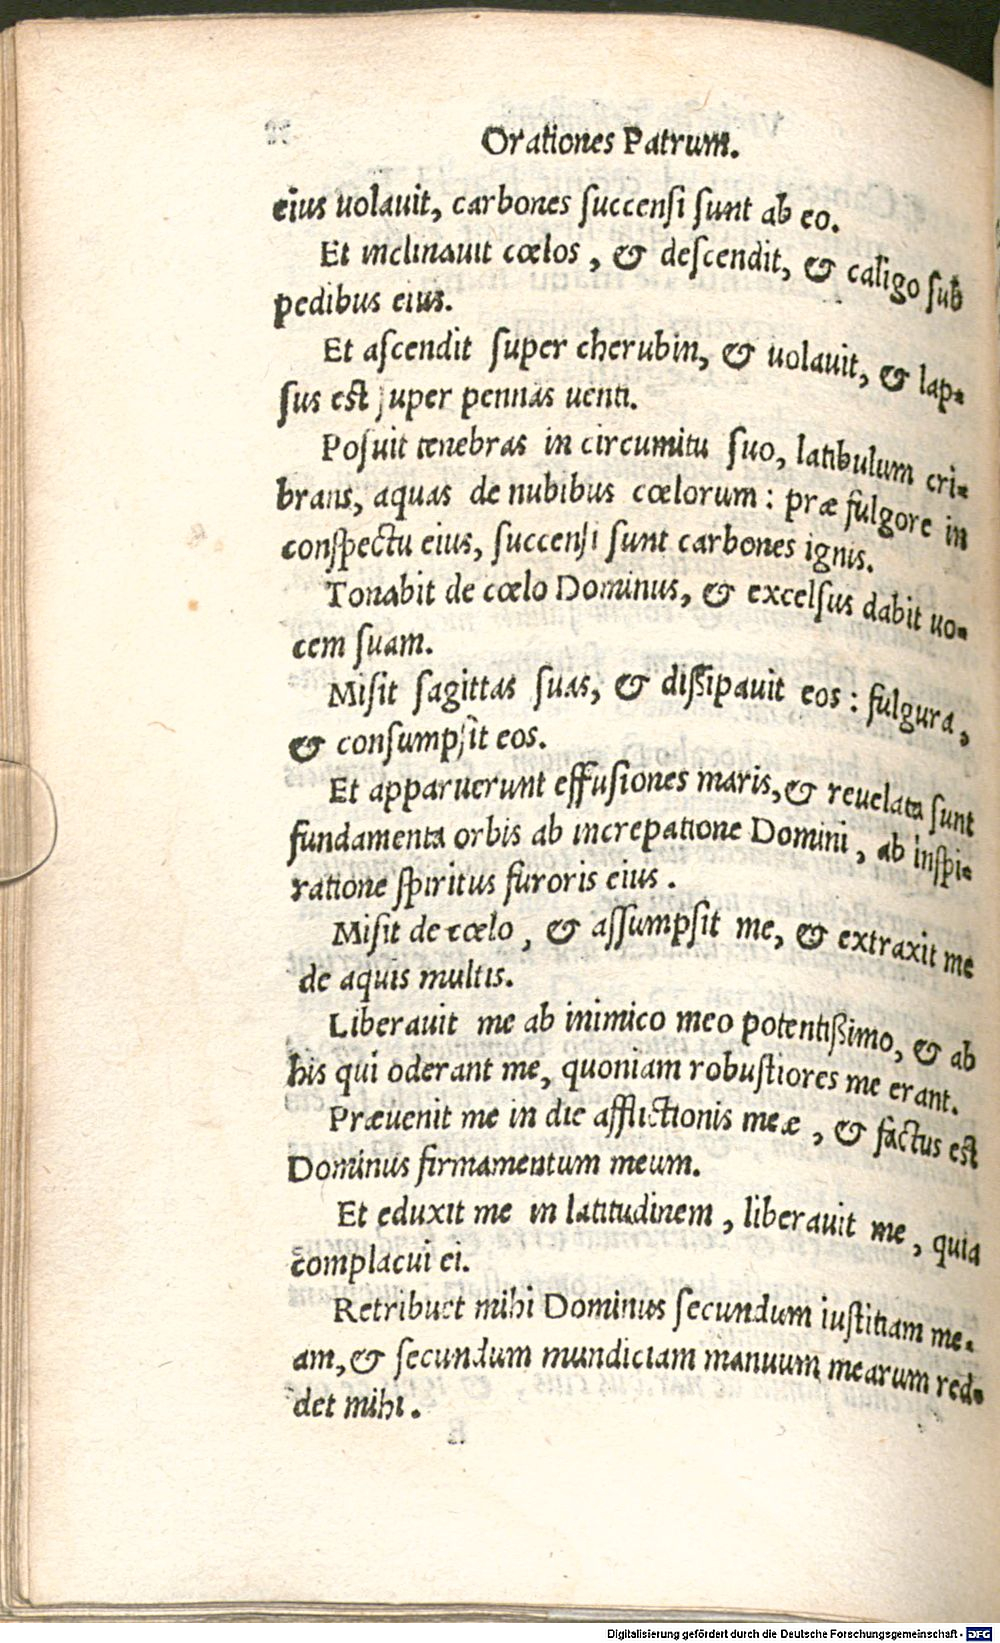 Orationes Patrum.
eius uolauit, carbones ſuccenſi ſunt ab eo.
Et inclinauit cœlos, & deſcendit, & caligo ſub
pedibus eius.
Et aſcendit ſuper cherubin, & uolauit, & lap-
ſus eſt ſuper pennas uenti.
Poſuit tenebras in circumitu ſuo, latibulum cri-
brans, aquas de nubibus cœlorum: præ fulgore in
conſpectu eius, ſuccenſi ſunt carbones ignis.
Tonabit de cœlo Dominus, & excelſus dabit uo-
cem ſuam.
Miſit ſagittas ſuas, & diſſipauit eos: fulgura,
& conſumpſit eos.
Et apparuerunt effuſiones maris, & reuelata ſunt
fundamenta orbis ab increpatione Domini, ab inſpi-
ratione ſpiritus furoris eius.
Miſit de cœlo, & aſſumpſit me, & extraxit me
de aquis multis.
Liberauit me ab inimico meo potentiſſimo, & ab
his qui oderant me, quoniam robuſtiores me erant.
Præuenit me in die afflictionis meæ, & factus eſt
Dominus firmamentum meum.
Et eduxit me in latitudinem, liberauit me, quia
complacui ei.
Retribuet mihi Dominus ſecundum iuſtitiam me-
am, & ſecundum mundiciam manuum mearum red-
det mihi.
Digitalisierung gefördert durch die Deutsche Forschungsgemeinschaft - DFG